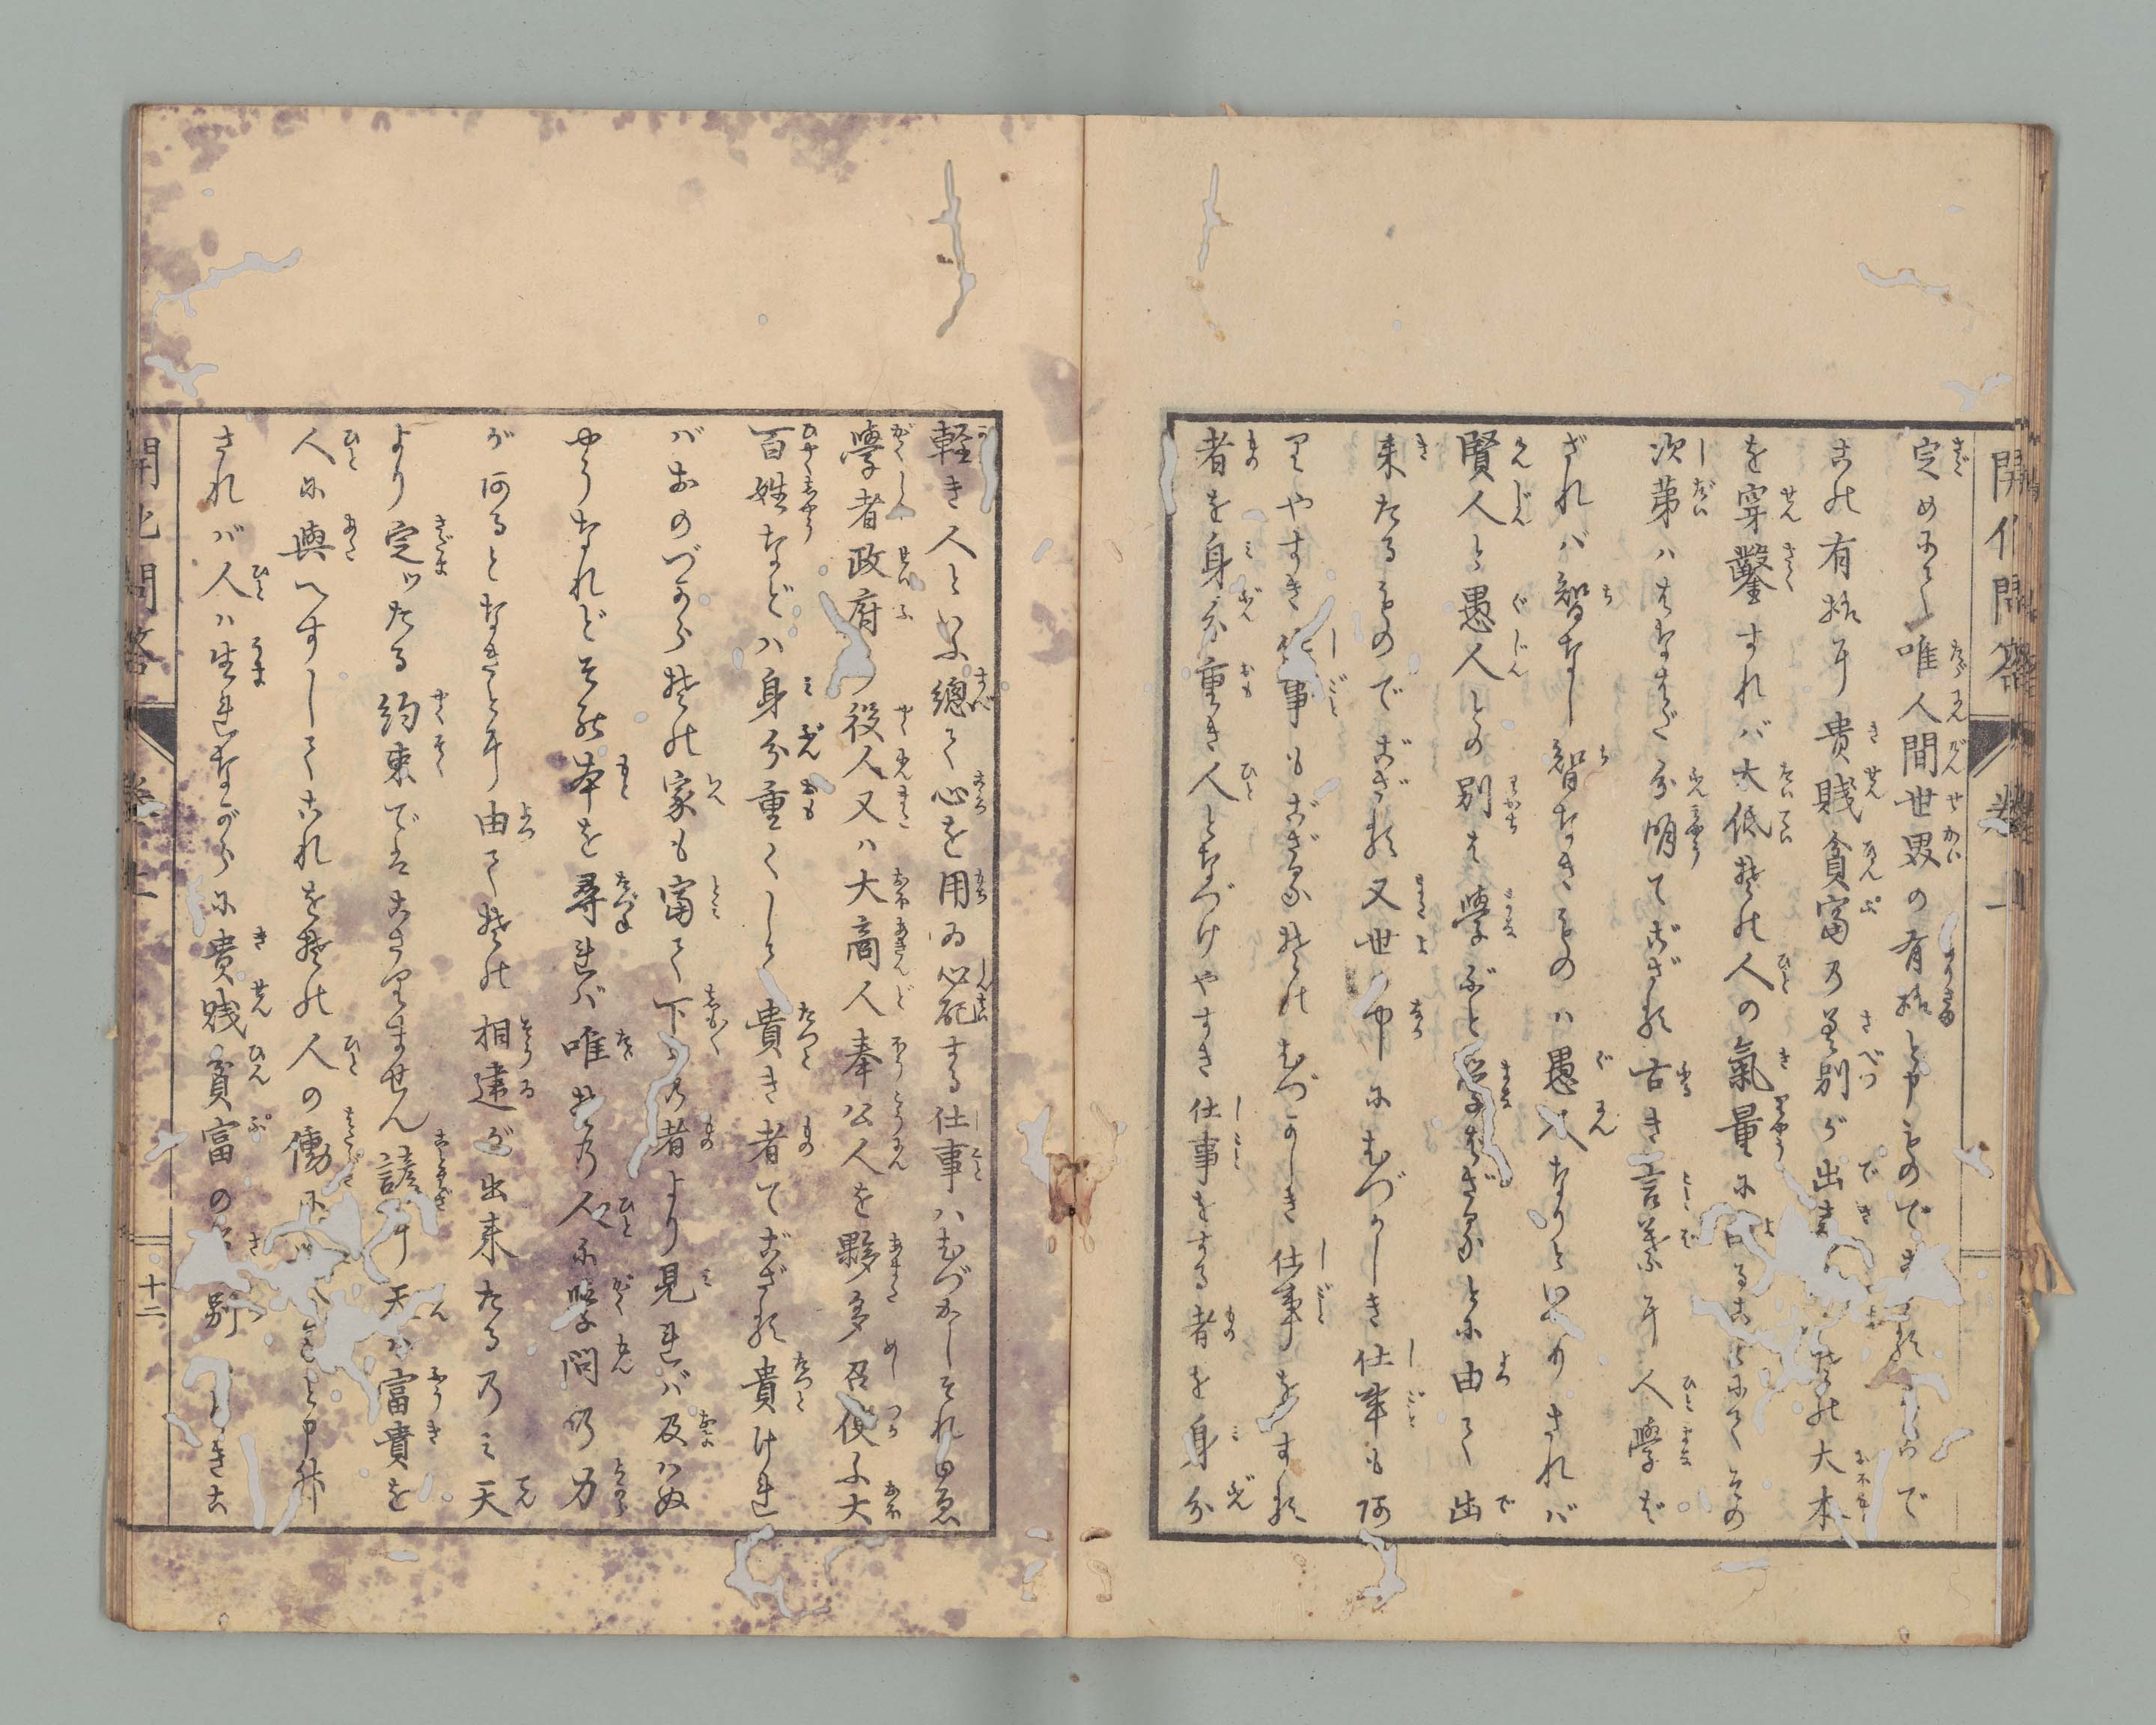 定めにて唯人間世界の有様と申ものでで
この有様に貴賤貧富の差別が出来その大本
を穿鑿すれバ大低其の人の氣量に因ることにてその
次第ハはなはだ分明でござる古き言葉に人學ば
ざれバ智なし智なきものハ愚人なりといへりされバ
賢人と愚人との別は學ぶと學ばざるとに由て出
來たるものでござる又世の中にむづかしき仕事も阿
りやすき仕事もござる其のむづかしき仕事をする
者を身分重き人となづけやすき仕事をする者を身分
軽き人といふ總て心を用ゐ心配する仕事ハむづかしそれゆゑ
學者政府の役人又ハ大商人奉公人を夥多召使ふ大
百姓などハ身分重くして貴き者でござる貴けれ
バおのづから其の家も富て下々の者より見れバ及バぬ
やうなれどその本を尋れバ唯其の人に學問の力
が阿るとなきとに由て其の相違が出來たるのミ天
より定ッたる約束でハこさりません諺に天ハ富貴を
人に與へずしてこれを其の人の働に與ると申升
されバ人ハ生れながらに貴賤貧富の差別なきこ
十二